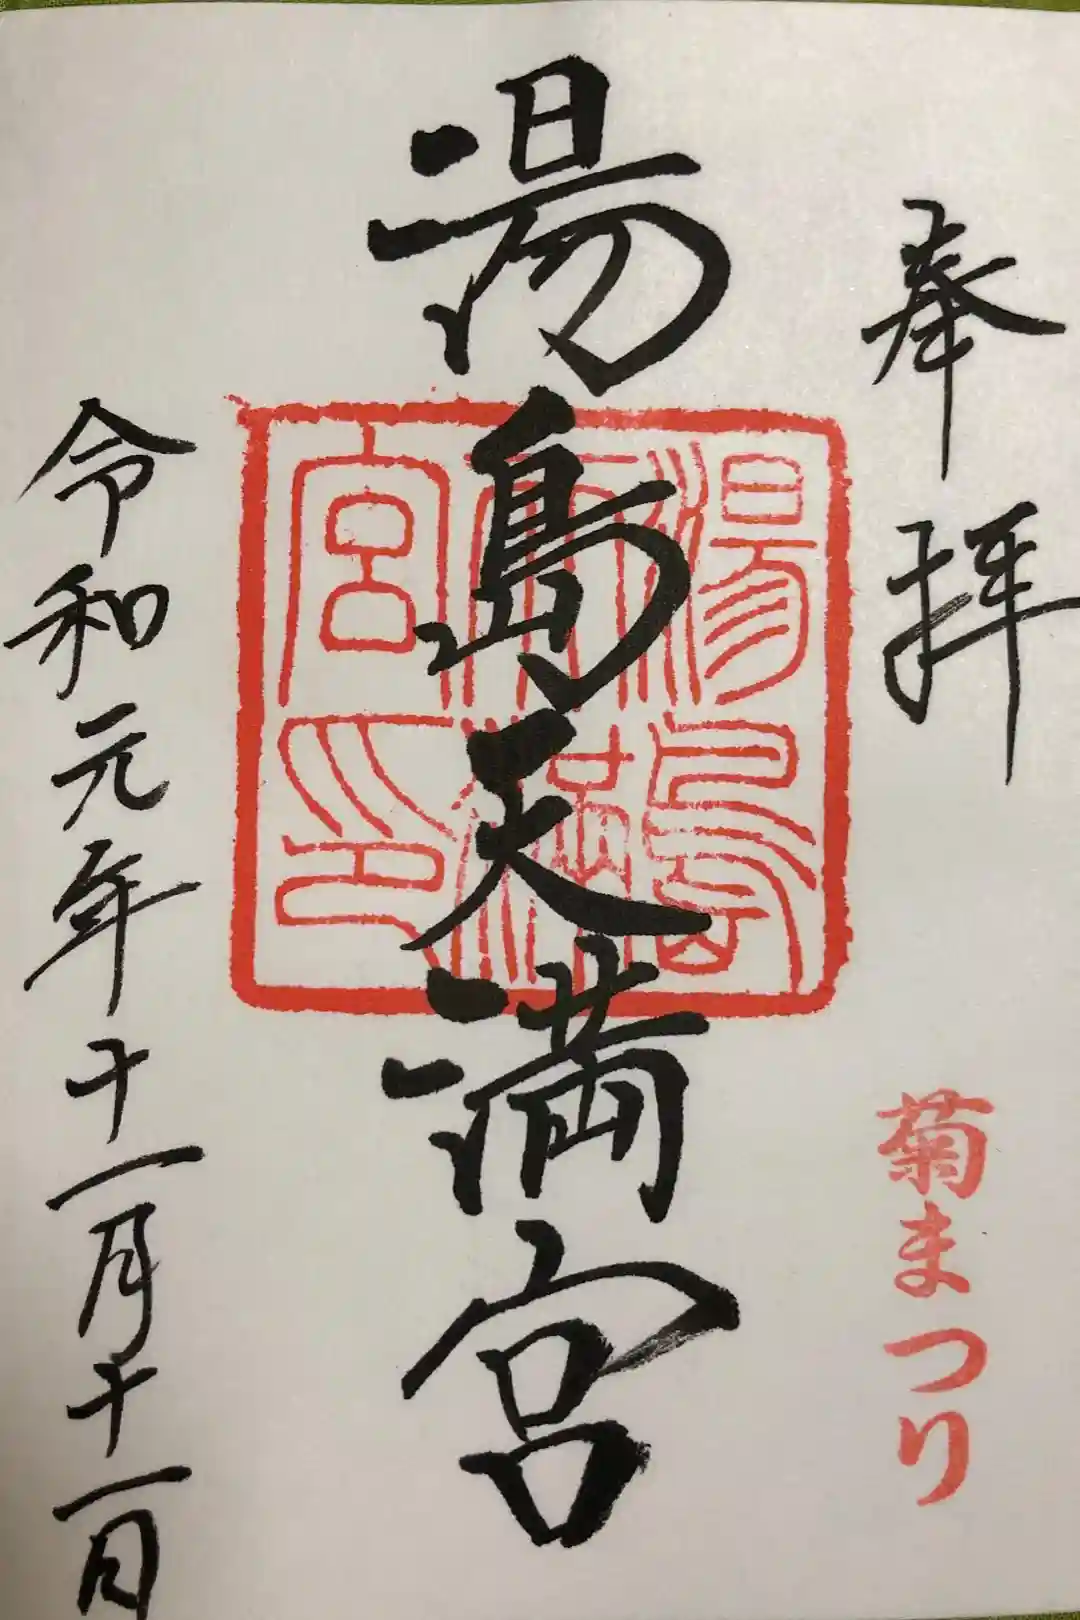 奉拝
菊まつり
湯島天満宮
湯島
天満
宮印
令和元年十一月十一日